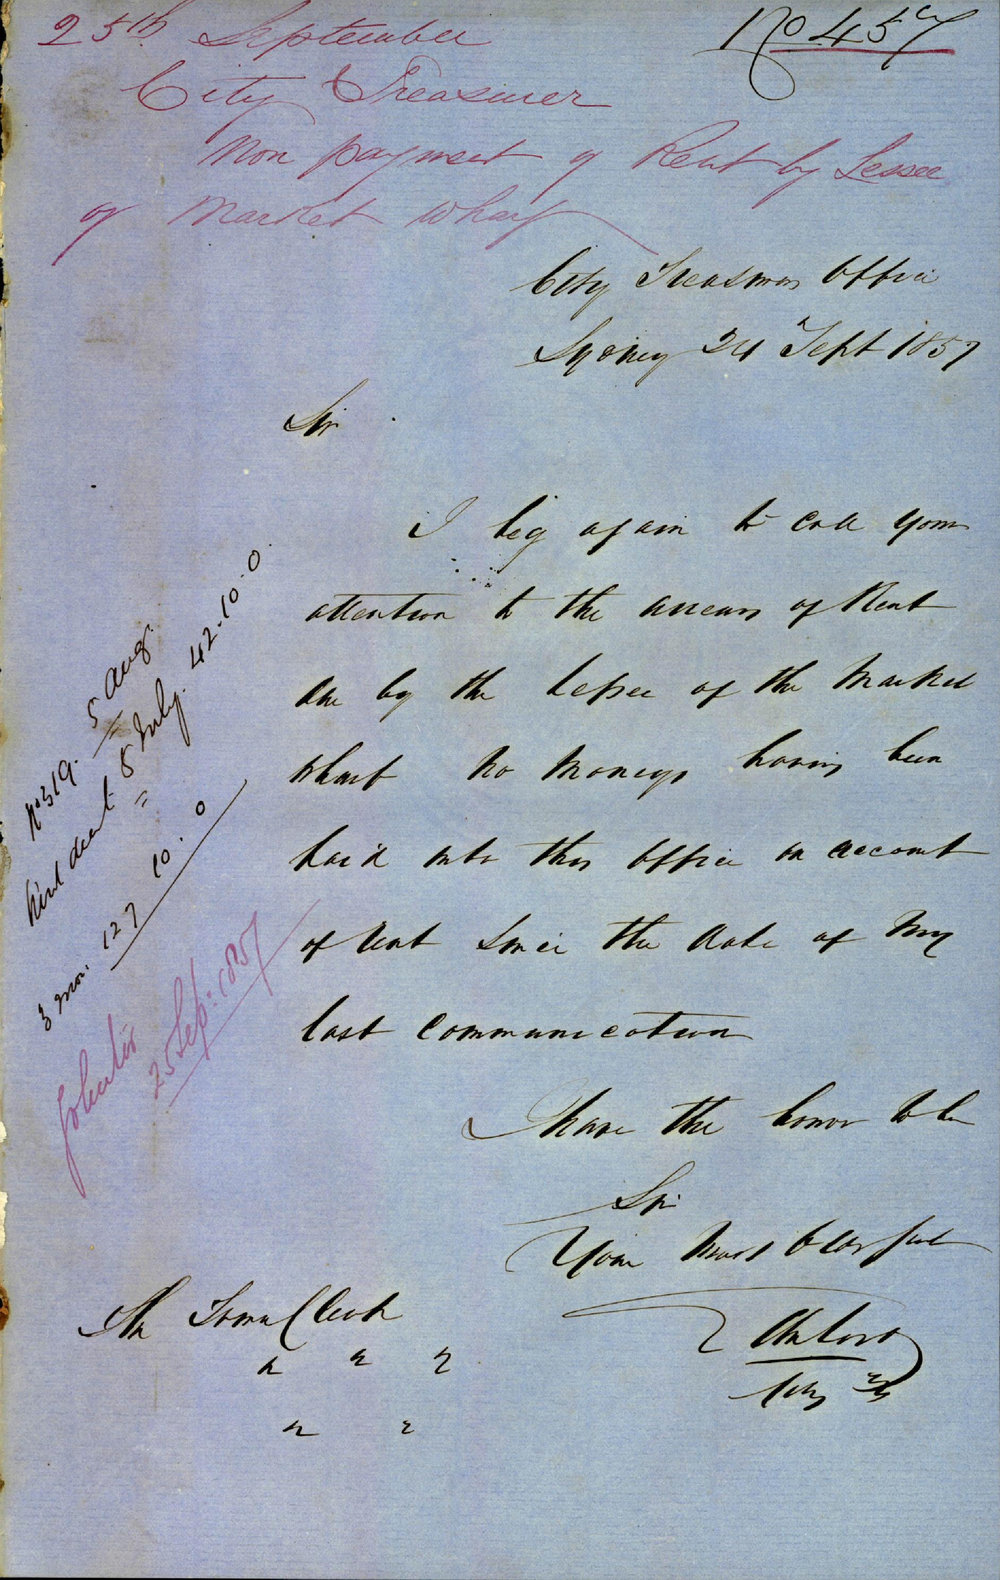 25th September
No 457
City Treasurer
Non payment of Rent by Lessee
of Market Wharf
City Treasurers Office
Sydney 24 Sept 1857
Sir
I beg again to call your
attention to the arrears of Rent
due by the Lessee of the Market
Wharf No Moneys having been
paid into this office on account
of Rent Since the date of My
last Communication
I have the honor to be
Sir
Your Most Obt Sert
City
The Town Clerk
" " "
" "
No 519. 5 Aug.
Rent due 8 July. 42.10.0
"
3 Mon. 127 10.0
25 Sep: 1857